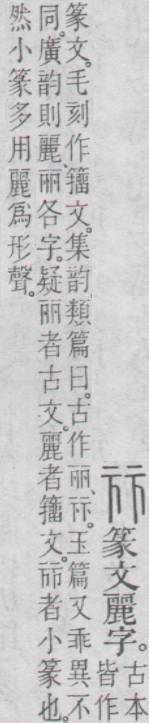 𠀾篆文麗字。
古本
皆作
篆文。毛刻作籀文。集韵、類篇曰。古作丽、𠀾。玉篇又乖異不
同。廣韵則麗、丽各字。疑丽者古文。麗者籀文。𠀾者小篆也。
然小篆多用麗爲形聲。